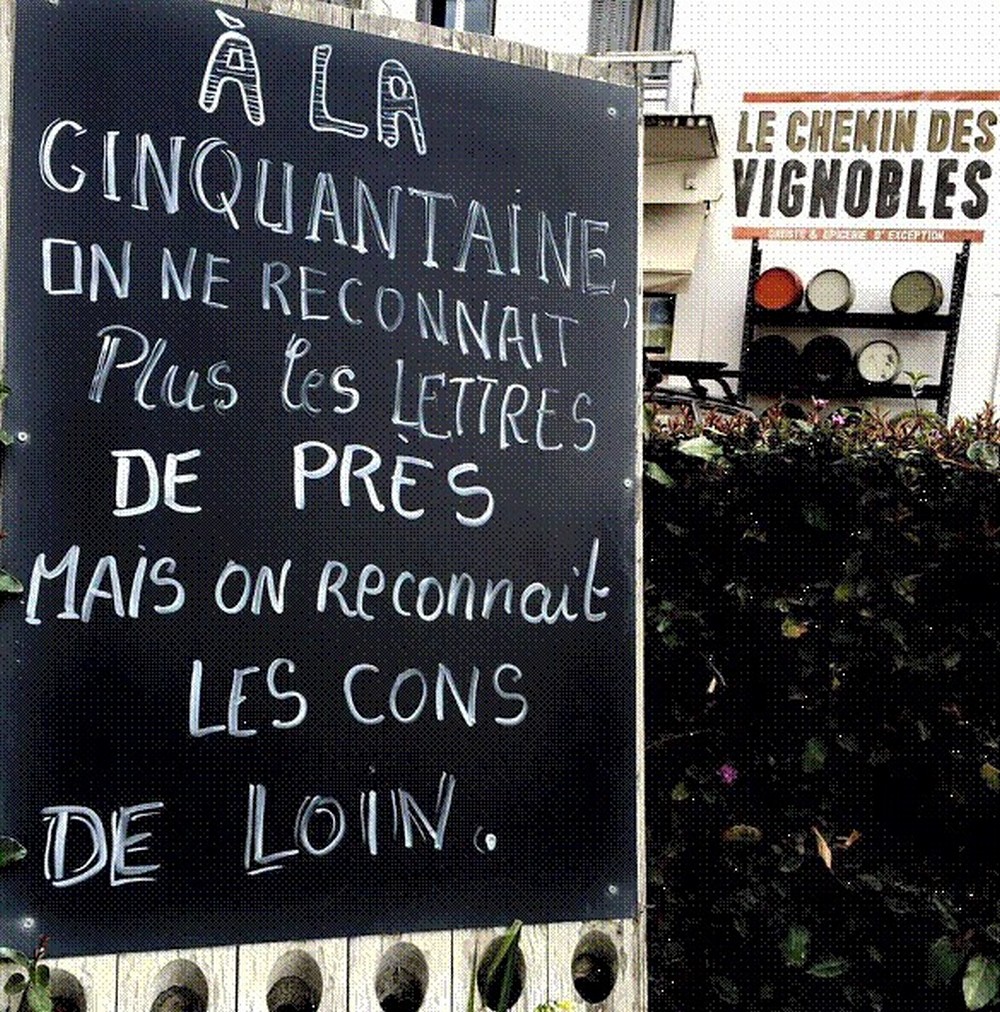 À LA
CINQUANTAINE,
ON NE RECONNAIT
Plus les LETTRES
DE PRÈS
MAIS ON Reconnait
LES CONS
DE LOIN.
LE CHEMIN DES
VIGNOBLES
CAVISTE & EPICERIE D'EXCEPTION